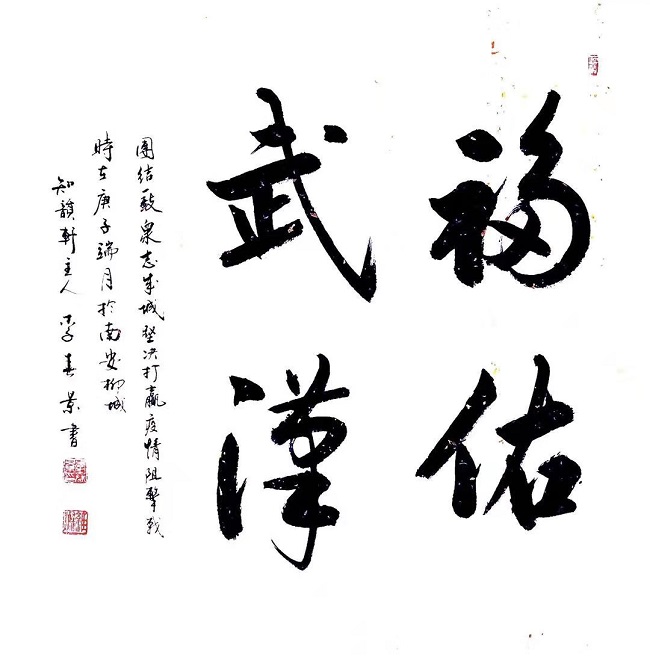 福佑
武漢
團结一致衆志成城坚决打赢疫情阻擊战
時在庚子端月於南安柳城
知韻軒主人李春景書